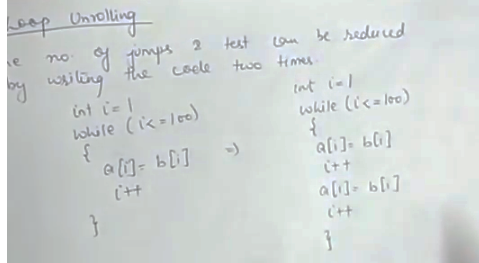 Loop Unrolling
e no. of jumps & test can be reduced
by writing the code two times.
int i=1
while (i<=100)
{
a[i]= b[i]
i++
}
=>
int i=1
while (i<=100)
{
a[i]= b[i]
i++
a[i]= b[i]
i++
}